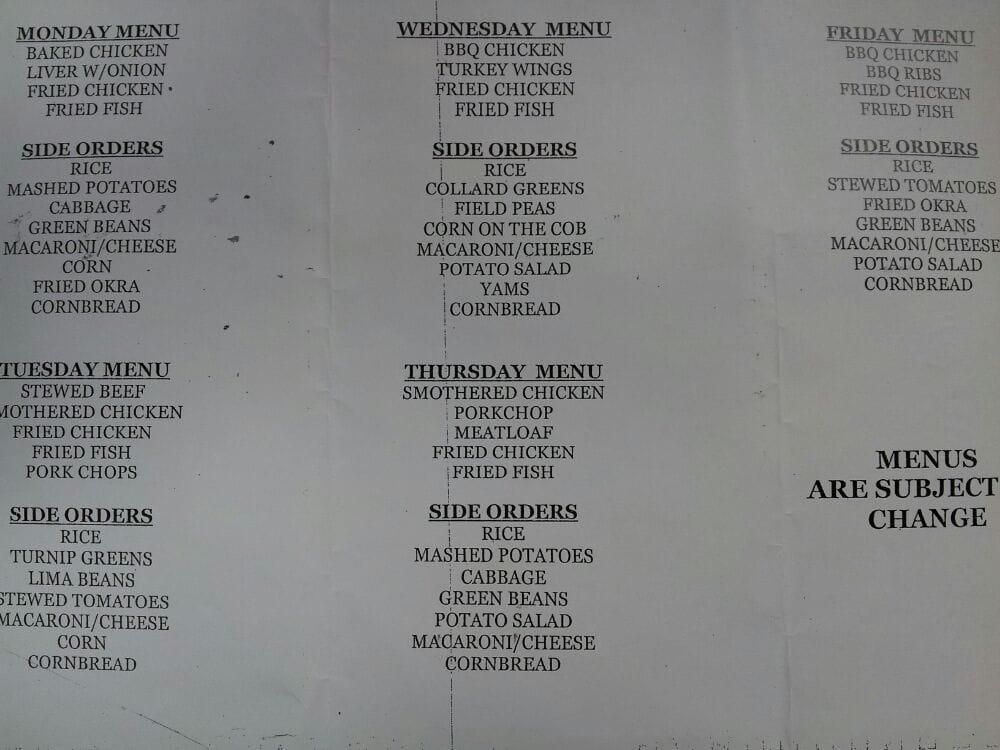 MONDAY MENU
BAKED CHICKEN
LIVER W/ONION
FRIED CHICKEN
FRIED FISH
SIDE ORDERS
RICE
MASHED POTATOES
CABBAGE
GREEN BEANS
MACARONI/CHEESE
CORN
FRIED OKRA
CORNBREAD
TUESDAY MENU
STEWED BEEF
MOTHERED CHICKEN
FRIED CHICKEN
FRIED FISH
PORK CHOPS
SIDE ORDERS
RICE
TURNIP GREENS
LIMA BEANS
STEWED TOMATOES
MACARONI/CHEESE
CORN
CORNBREAD
WEDNESDAY MENU
BBQ CHICKEN
TURKEY WINGS
FRIED CHICKEN
FRIED FISH
SIDE ORDERS
RICE
COLLARD GREENS
FIELD PEAS
CORN ON THE COB
MACARONI/CHEESE
POTATO SALAD
YAMS
CORNBREAD
THURSDAY MENU
SMOTHERED CHICKEN
PORKCHOP
MEATLOAF
FRIED CHICKEN
FRIED FISH
SIDE ORDERS
RICE
MASHED POTATOES
CABBAGE
GREEN BEANS
POTATO SALAD
MACARONI/CHEESE
CORNBREAD
FRIDAY MENU
BBQ CHICKEN
BBQ RIBS
FRIED CHICKEN
FRIED FISH
SIDE ORDERS
RICE
STEWED TOMATOES
FRIED OKRA
GREEN BEANS
MACARONI/CHEESE
POTATO SALAD
CORNBREAD
MENUS
ARE SUBJECT
CHANGE